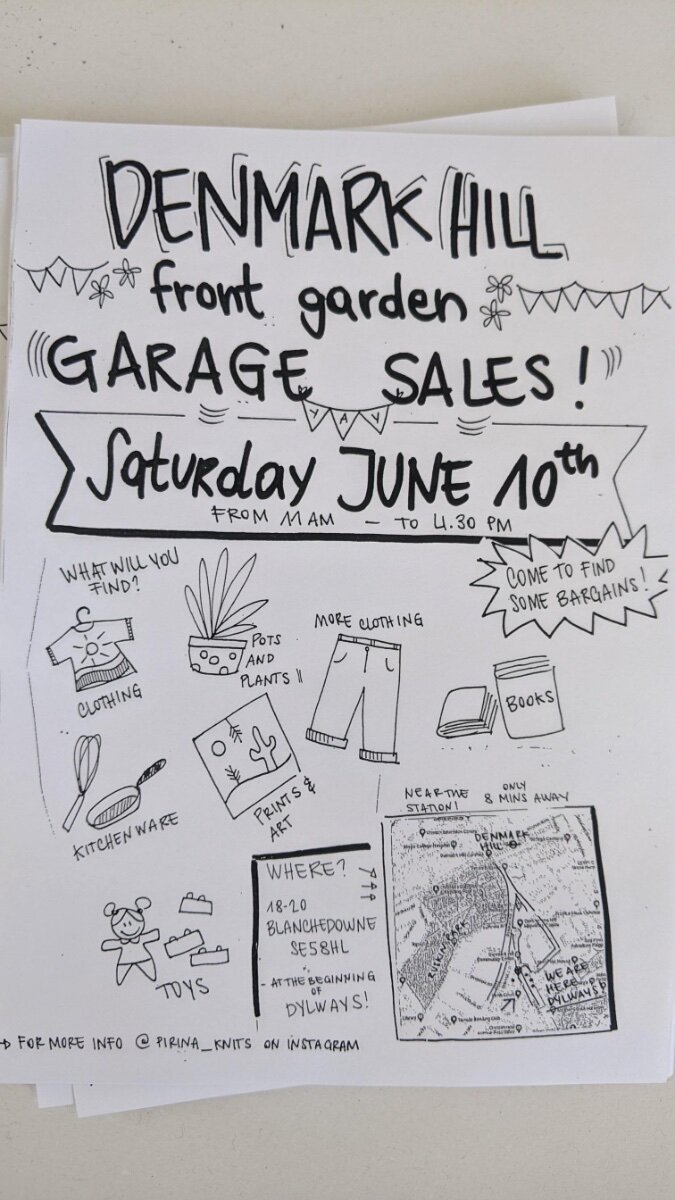 DENMARK HILL
front garden
GARAGE SALES!
YAY
Saturday JUNE 10th
FROM 11 AM — TO 4.30 PM
COME TO FIND
SOME BARGAINS!
WHAT WILL YOU
FIND?
CLOTHING
POTS
AND
PLANTS
MORE CLOTHING
BOOKS
KITCHENWARE
PRINTS &
ART
TOYS
WHERE?
18-20
BLANCHEDOWNE
SE58HL
- AT THE BEGINNING
OF
DYLWAYS!
NEAR THE
STATION!
ONLY
8 MINS AWAY
DENMARK
HILL
RUSKIN PARK
WE ARE
HERE
DYLWAYS!
→ FOR MORE INFO @ PIRINA_KNITS ON INSTAGRAM